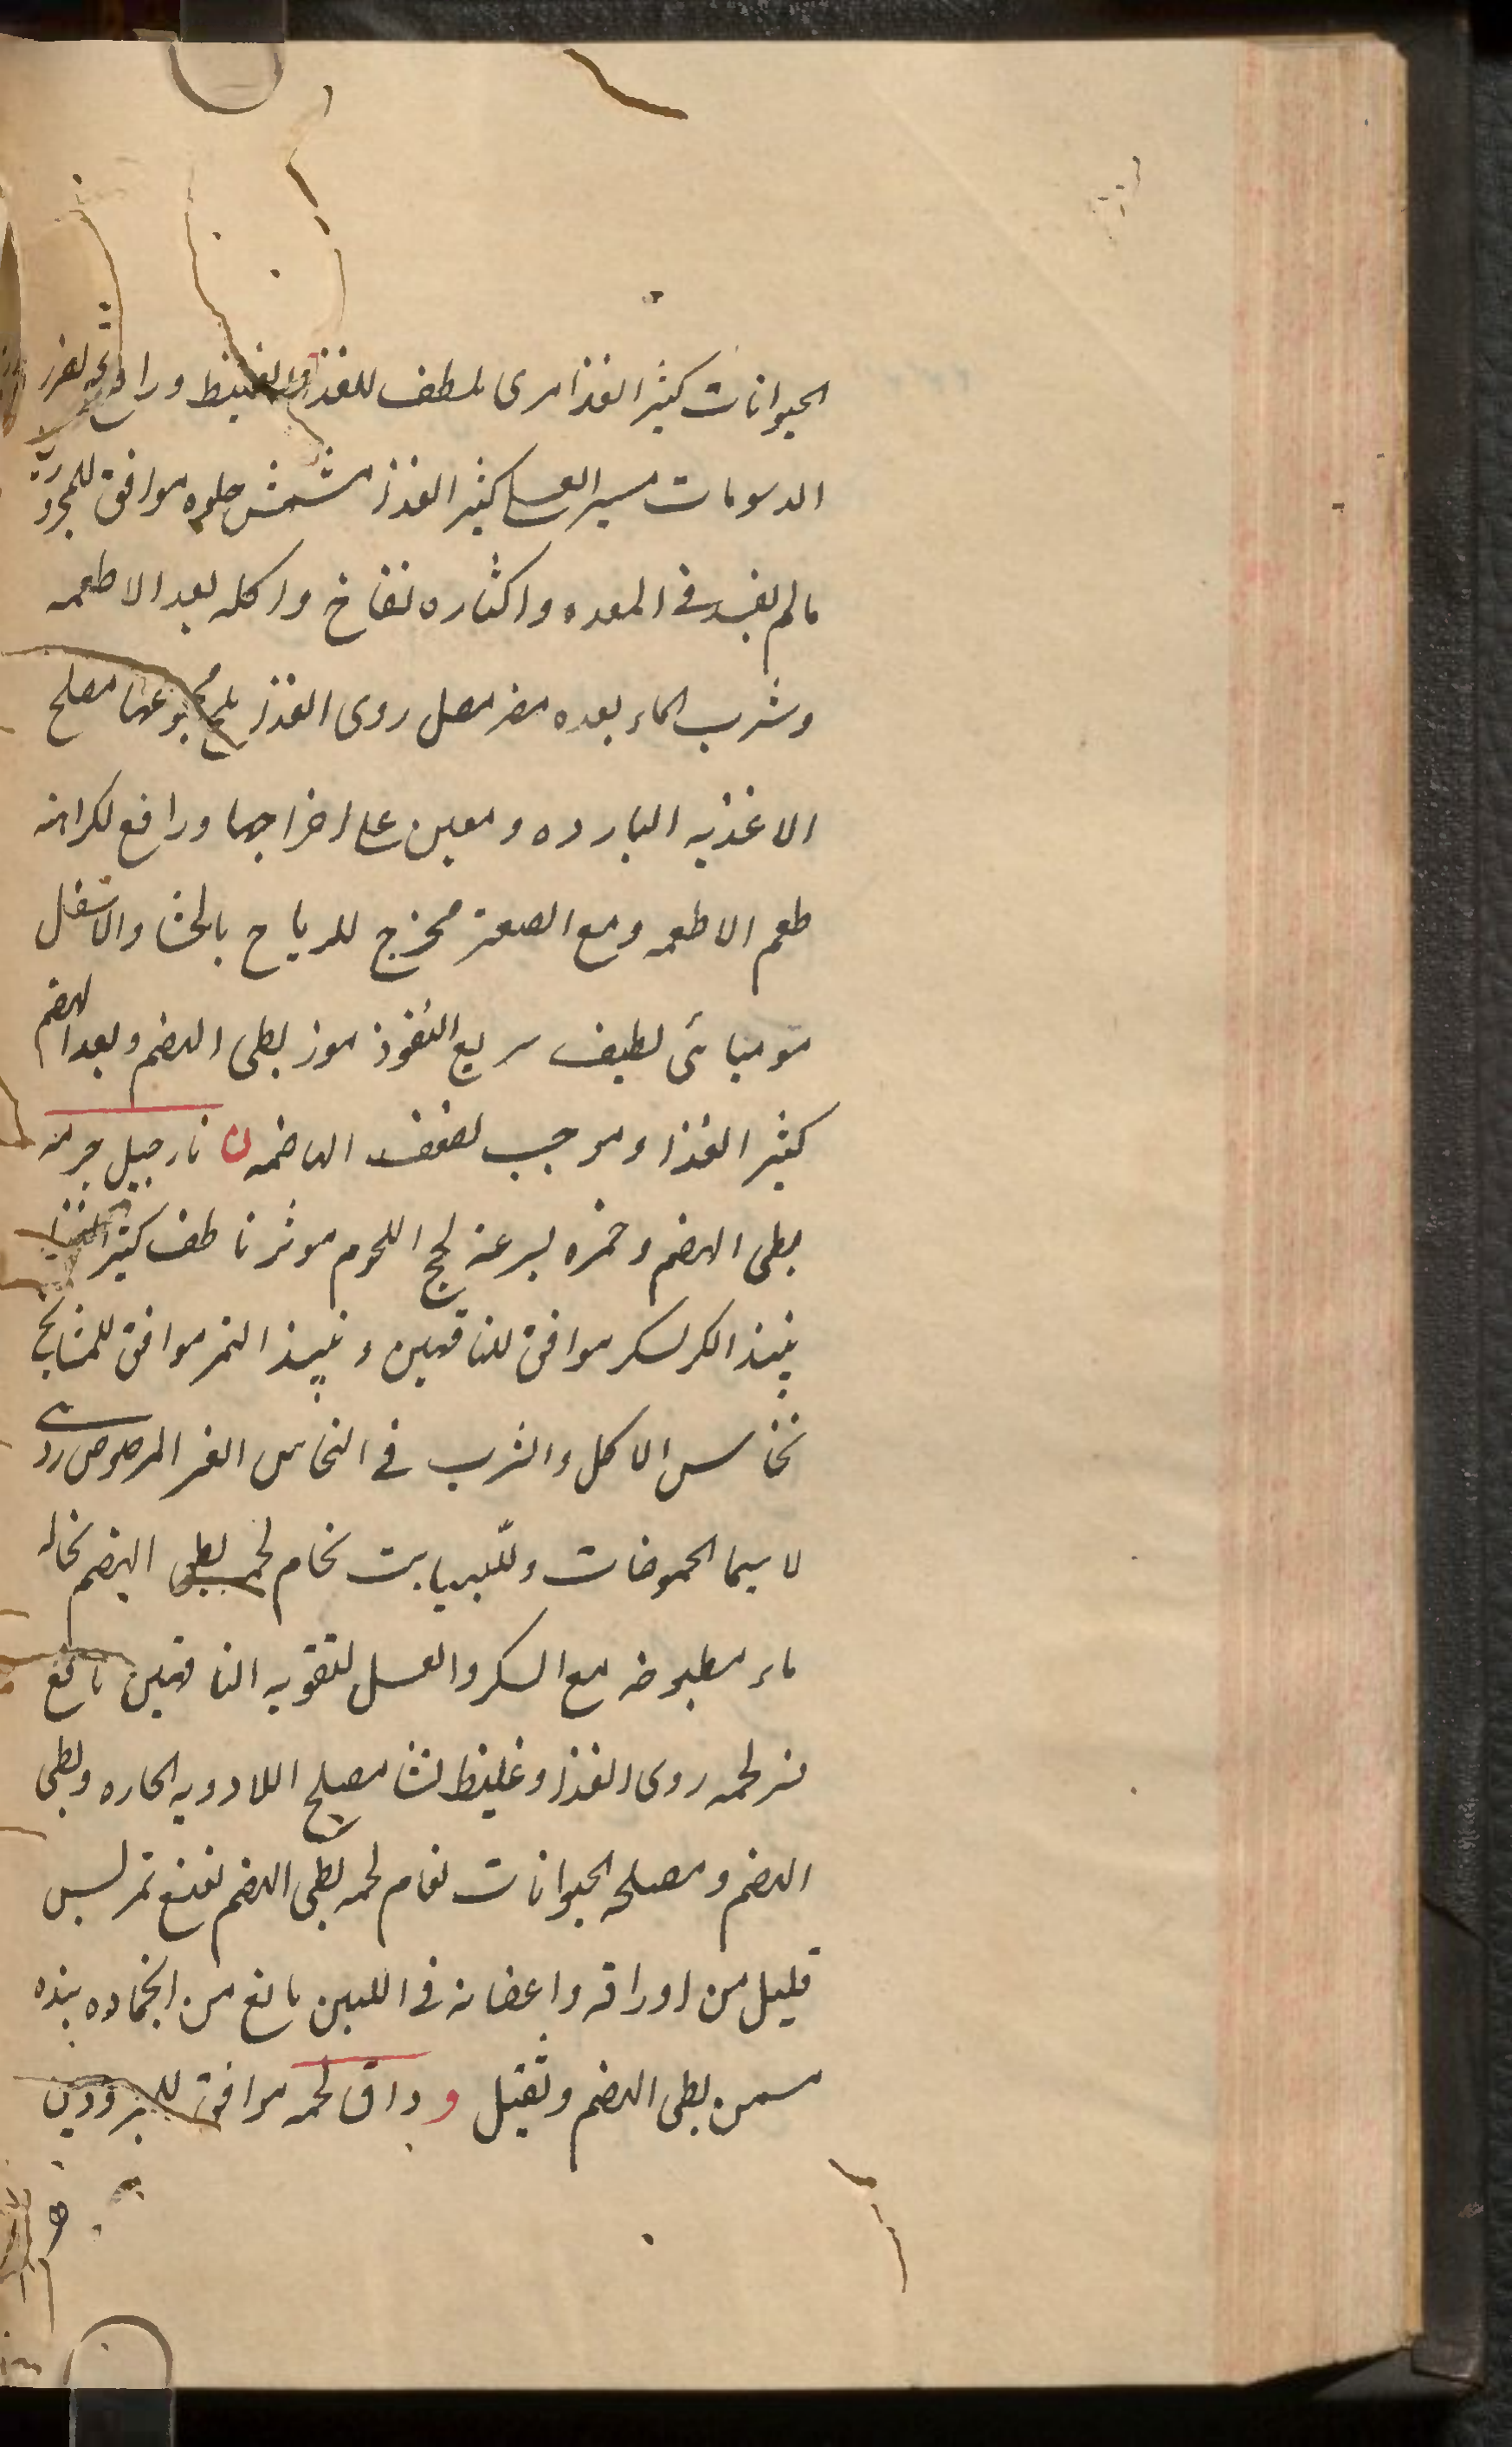 الحیوانات کثیر الغذا مری ملطف للغذا الغلیظ ورافع لضرر
الدسومات مسیر العسا کثیر الغذا مشمش حلوه موافق للمحرور
مالم یفسد فی المعده واکثاره نفاخ واکله بعد الاطعمه
وشرب الماء بعده مضر مصل ردی الغذا ملح مصلح
الاغذیه البارده ومعین علی اخراجها ورافع لکراهه
طعم الاطعمه ومع الصعتر مخرج للریاح بالجشا والاسفل
مومیائی لطیف سریع النفوذ موز بطی الهضم وبعد الهضم
کثیر الغذا وموجب لضعف الهاضمه ن نارجیل جرمه
بطی الهضم وخمره بسرعه لهج اللحوم موثر ناطف کثیر الغذا
نبیذ السکر موافق للناقهین ونبیذ التمر موافق للمشایخ
نحاس الاکل والشرب فی النحاس الغیر المرصوص ردی
لاسیما الحموضات نحام لحمه بطی الهضم نخاله
ماء مطبوخه مع السکر والعسل لتقویه الناقهین نافع
نسر لحمه ردی الغذا وغلیظ نشا مصلح اللادویه الحاره وبطی
الهضم ومصلحه الحیوانات نعام لحمه بطی الهضم نعنع تمرس
قلیل من اوراقه واغصانه فی اللبن مانع من انجماده
مسمن بطی الهضم وثقیل و وراق لحمه موافق للمبرودین